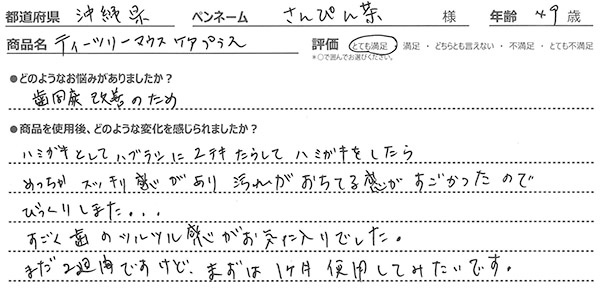 都道府県 沖縄県 ペンネーム さんぴん茶 様 年齢 49 歳
商品名 ティーツリーマウスケアプラス 評価 とても満足・満足・どちらとも言えない・不満足・とても不満足
*○で囲んでお選びください。
●どのようなお悩みがありましたか？
歯周病改善のため
●商品を使用後、どのような変化を感じられましたか？
ハミガキとしてハブラシに2テキたらしてハミガキをしたら
めっちゃスッキリ感があり汚れがおちてる感がすごかったので
びっくりしました...
すごく歯のツルツル感がお気に入りでした。
まだ2週間ですけど、まずは1ヶ月使用してみたいです。